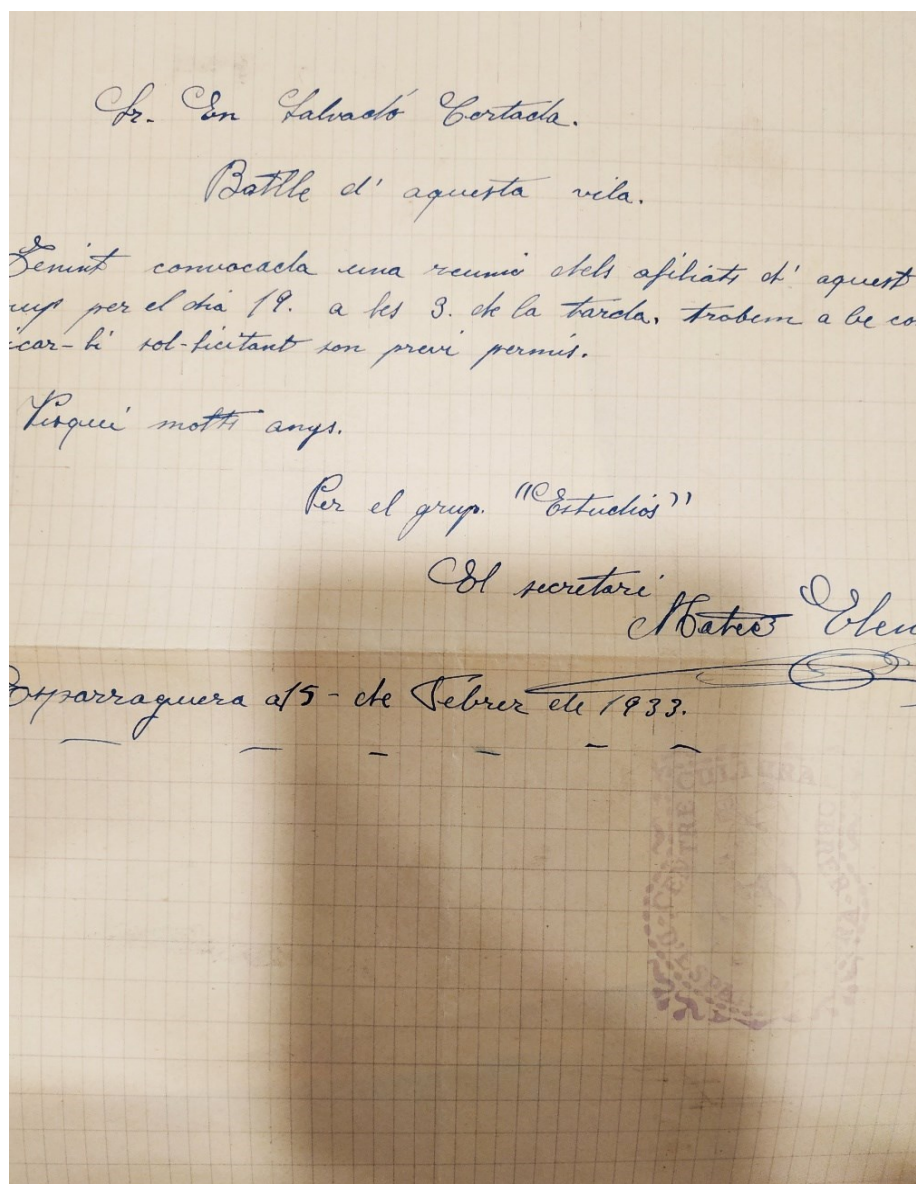 Sr. En Salvadó Cortada.
Batlle d' aquesta vila.
Tenint convocada una reunió dels afiliats d' aquest
up per el dia 19. a les 3. de la tarda, trobem a be co
icar-li sol-licitant son previ permís.
Visqui molts anys.
Per el grup. "Estudios"
El secretari
Mateo
Esparraguera a 15 - de Febrer de 1933.
CENTRE CULTURA
D'ESPA